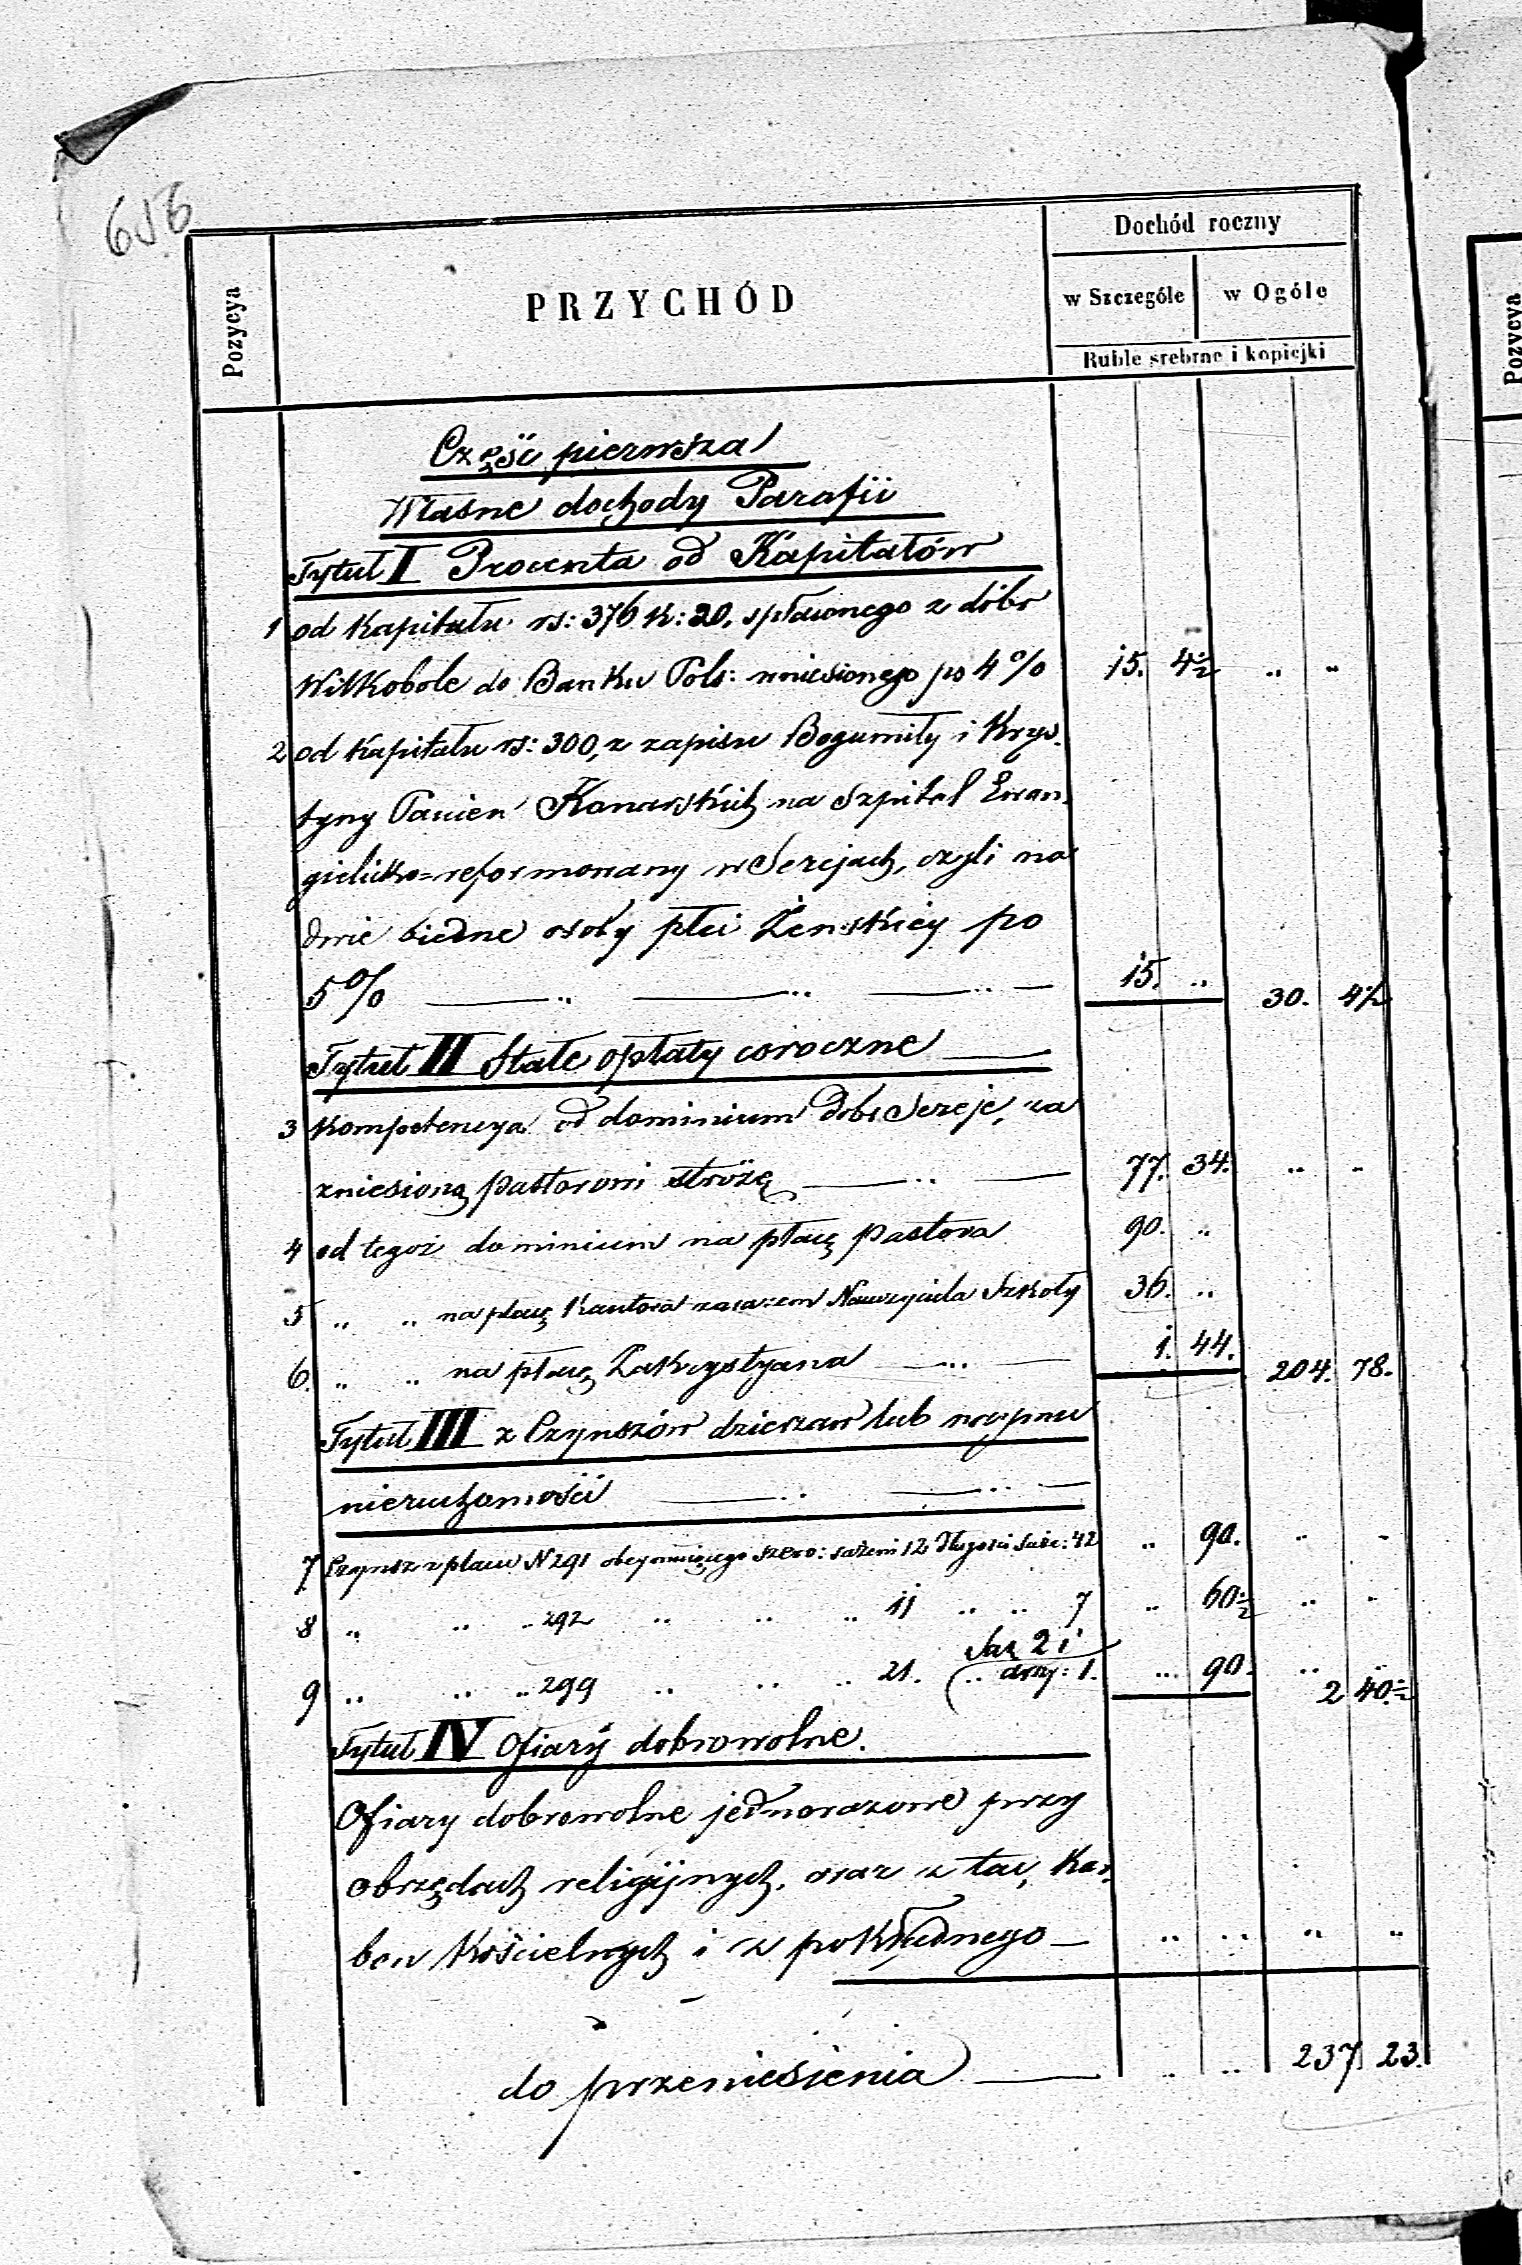 656
Pozycya
PRZYCHÓD
Dochód roczny
w Szczególe
w Ogóle
Ruble srebrne i kopiejki
Część pierwsza
Własne dochody Parafii
Tytuł I Procenta od Kapitałów
1 od Kapitału rs: 376 k: 20, spłaconego z dóbr
Wilkobole do Banku Pols: wniesionego po 4% 15. 4½ .. ..
2 od Kapitału rs: 300, z zapisu Bogumiły i Krys-
tyny Panien Konarskich na Szpital Ewan-
gielicko=reformowany w Serejach, czyli na
dwie biedne osoby płci Żeńskiéy po
5% — .. — .. — .. — 15. .. 30. 4½
Tytuł II Stałe opłaty coroczne —
3 Kompetencya od dominium Dóbr Sereje, za
zniesioną pastorowi stróżę — .. — 77. 34. .. ..
4 od tegoż dominium na płacę Pastora 90. ..
5 .. .. na płacę Kantora zarazem Nauczyciela Szkoły 36. ..
6. .. .. na płacę Zakrystyana — .. — 1. 44. 204. 78.
Tytuł III z Czynszów dzierzaw lub najmu
nieruchomości — .. — .. —
7 Czynsz z placu N 291 obeymuiącego szero: sażeni 12 Długości Saże: 42 .. 90. .. ..
8 .. .. .. 292 .. .. .. 11 .. .. 7 .. 60½ .. ..
9 .. .. .. 299 .. .. .. 21. Saż 21 .. arszy: 1. .. 90. .. .. 2 40½
Tytuł IV Ofiary dobrowolne.
Ofiary dobrowolne jednorazowe przy
obrzędach religijnych, oraz z tac, Kar-
bon Kościelnych i z pokładnego — .. .. .. ..
do przeniesienia — .. .. 237 23.
Pozycya